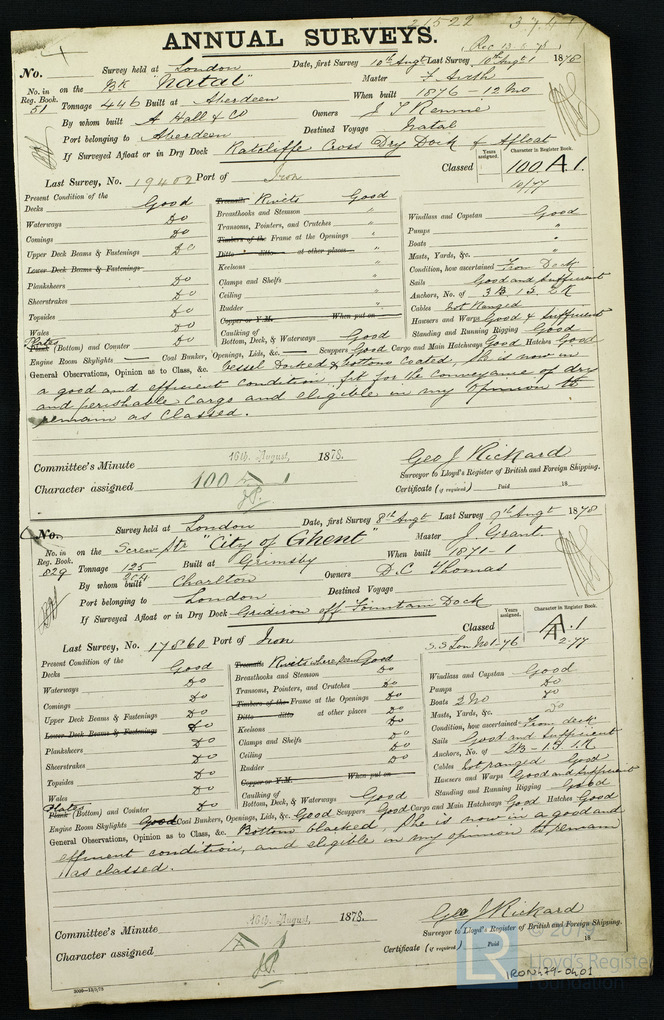 21522
ANNUAL SURVEYS.
Rec 13.8.78
No. Survey held at London Date, first Survey 10th Augt Last Survey 10th Augt 1878
No. in Reg. Book. 51 on the BK "Natal" Master
Tonnage 446 Built at Aberdeen When built 1876 - 12 Mo
By whom built A Hall & Co Owners J T Rennie
Port belonging to Aberdeen Destined Voyage Natal
If Surveyed Afloat or in Dry Dock Ratcliffe Cross Dry Dock & Afloat
Last Survey, No. 19402 Port of Iron Classed Years assigned. Character in Register Book. 100 A.1.
10/77
Present Condition of the
Decks Good
Waterways Do
Comings Do
Upper Deck Beams & Fastenings Do
Lower Deck Beams & Fastenings
Planksheers Do
Sheerstrakes Do
Topsides Do
Wales Do
Plates
Plank (Bottom) and Counter Do
Treenails Rivets Good
Breasthooks and Stemson "
Transoms, Pointers, and Crutches "
Timbers of the Frame at the Openings "
Ditto " ditto at other places "
Keelsons "
Clamps and Shelfs "
Ceiling "
Rudder "
Copper or Y.M. When put on
Caulking of Bottom, Deck, & Waterways Good
Windlass and Capstan Good
Pumps "
Boats "
Masts, Yards, &c. "
Condition, how ascertained From Deck
Sails Good and Sufficient
Anchors, No. of 3 B. 1 S. 2 K
Cables not Ranged
Hawsers and Warps Good & Sufficient
Standing and Running Rigging Good
Engine Room Skylights — Coal Bunker, Openings, Lids, &c. — Scuppers Good Cargo and Main Hatchways Good Hatches Good
General Observations, Opinion as to Class, &c. Vessel Docked & bottom coated, She is now in
a good and efficient condition, fit for the conveyance of dry
and perishable Cargo and eligible in my opinion to
remain as Classed.
Committee's Minute 16th August, 1878.
Geo J Rickard
Surveyor to Lloyd's Register of British and Foreign Shipping.
Character assigned 100 A 1
Certificate (if required) Paid 18
No. Survey held at London Date, first Survey 8th Augt Last Survey 9th Augt 1878
No. in Reg. Book. 829 on the Screw Str "City of Ghent" Master J. Grant.
Tonnage 125 Built at Grimsby When built 1871 - 1
204
By whom built Charlton Owners D.C Thomas
Port belonging to London Destined Voyage
If Surveyed Afloat or in Dry Dock Gridiron off Fountain Dock
Last Survey, No. 17860 Port of Iron Classed Years assigned. Character in Register Book. A.1
S.S Lon No1-76 2.77
Present Condition of the
Decks Good
Waterways Do
Comings Do
Upper Deck Beams & Fastenings Do
Lower Deck Beams & Fastenings Do
Planksheers Do
Sheerstrakes Do
Topsides Do
Wales Do
Plates
Plank (Bottom) and Counter Do
Treenails Rivets where seen Good
Breasthooks and Stemson Do
Transoms, Pointers, and Crutches Do
Timbers of the Frame at the Openings Do
Ditto ditto at other places Do
Keelsons Do
Clamps and Shelfs Do
Ceiling Do
Rudder Do
Copper or Y.M. When put on
Caulking of Bottom, Deck, & Waterways Good
Windlass and Capstan Good
Pumps Do
Boats 2 No Do
Masts, Yards, &c. Do
Condition, how ascertained From deck
Sails Good and Sufficient
Anchors, No. of 2B - 1 S. 1 K
Cables not ranged Good
Hawsers and Warps Good and Sufficient
Standing and Running Rigging Good
Engine Room Skylights Good Coal Bunkers, Openings, Lids, &c. Good Scuppers Good Cargo and Main Hatchways Good Hatches Good
General Observations, Opinion as to Class, &c. Bottom blacked, She is now in a good and
efficient condition, and eligible in my opinion to remain
as classed.
Committee's Minute 16th August, 1878.
Geo J Rickard
Surveyor to Lloyd's Register of British and Foreign Shipping.
Character assigned A 1
Certificate (if required) Paid 18
© 2019
LR
Lloyd's Register
Foundation
IRON479-0401